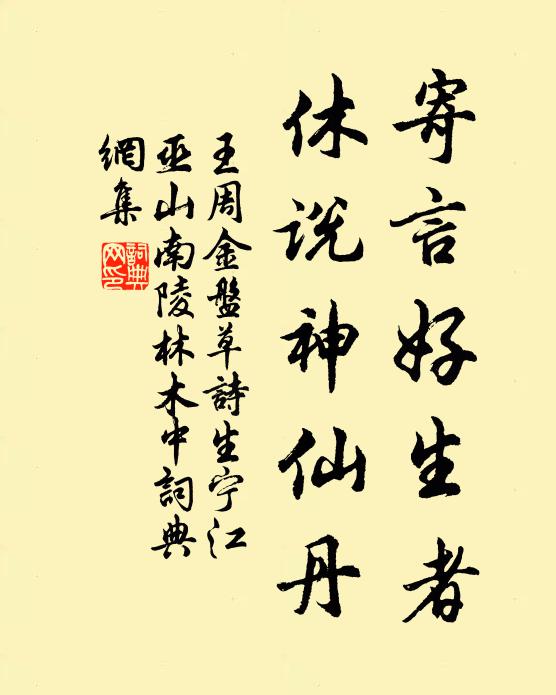 寄言好生者
休说神仙丹
王周金盤草詩生宁江
巫山南陵林木中詞典
網集
詞典
网印